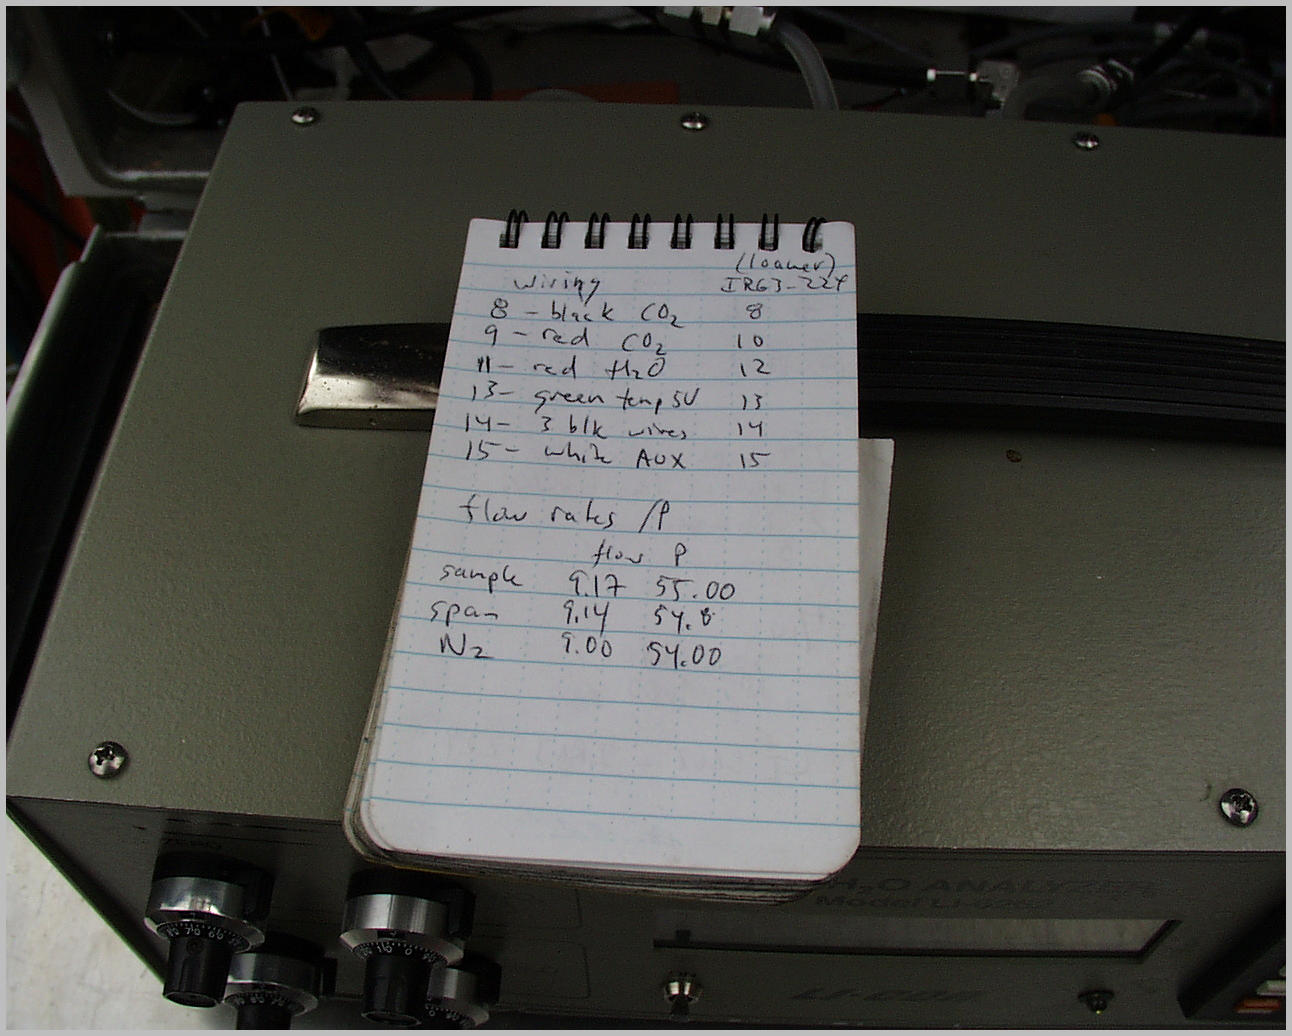 (loaner)
wiring IRG3-224
8 - black CO2 8
9 - red CO2 10
11 - red H2O 12
13 - green temp 5V 13
14 - 3 blk wires 14
15 - white AUX 15
flow rates /P
flow P
sample 9.17 55.00
span 9.14 54.8
N2 9.00 54.00
ZERO
H2O ANALYZER
Model LI-
LI-COR